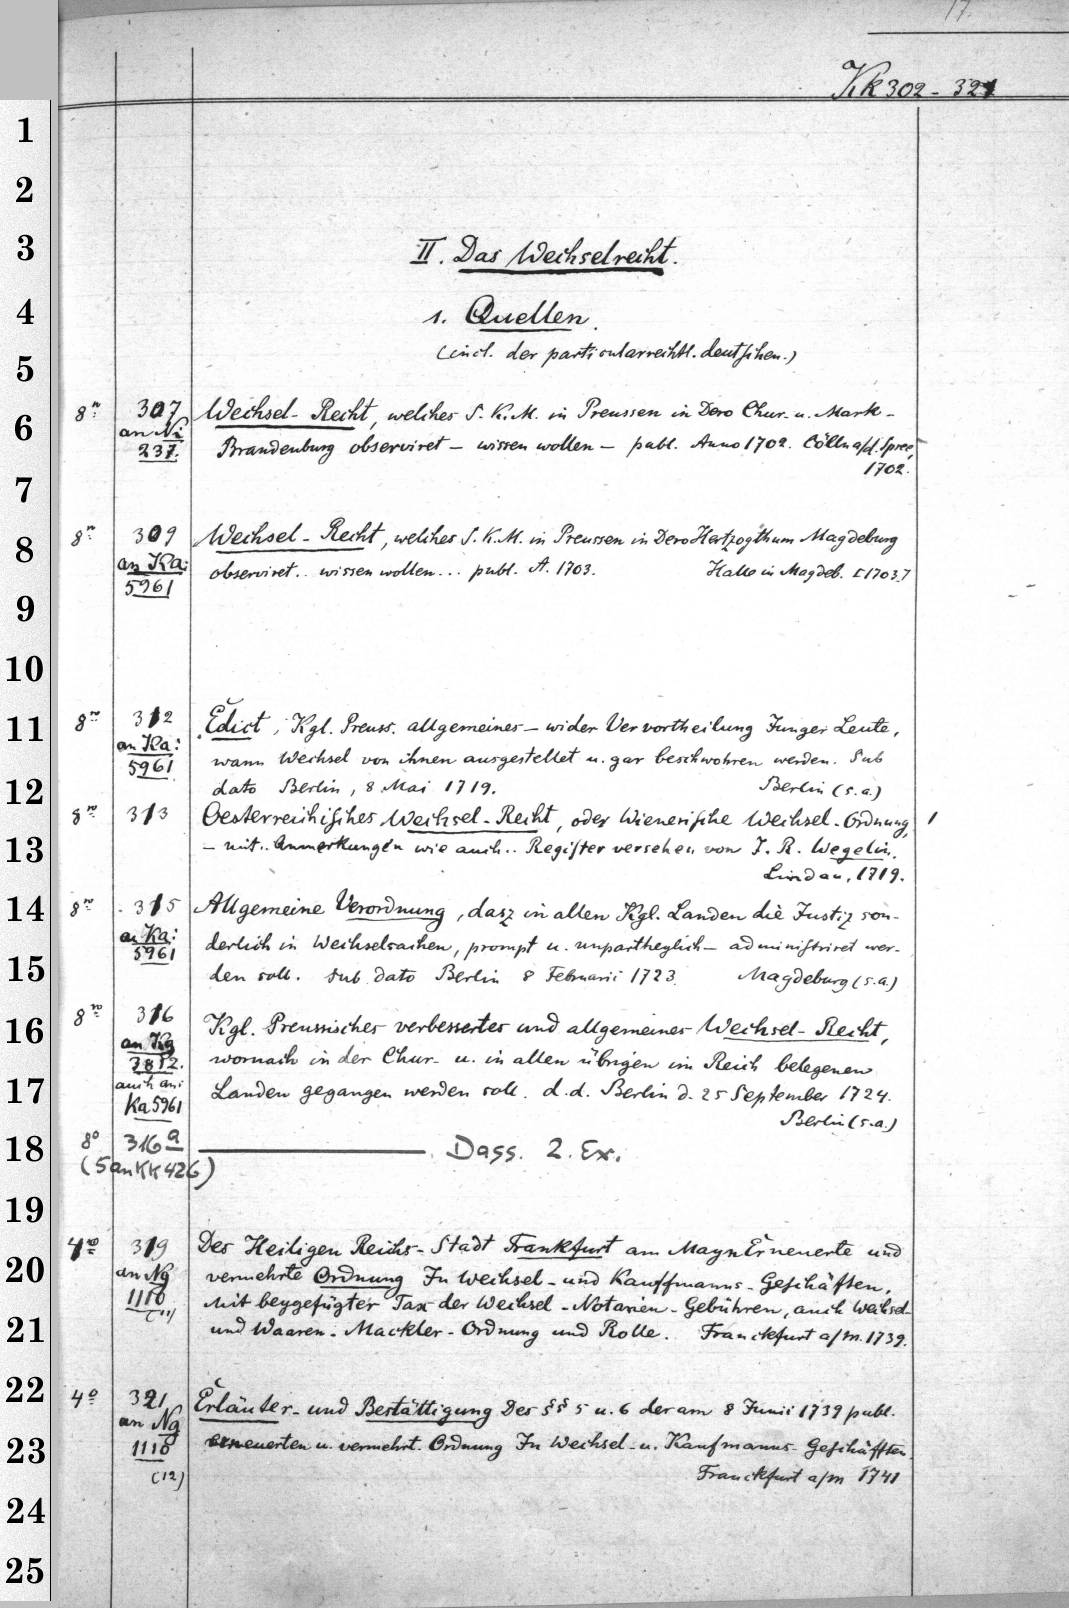 17.
Kk 302 - 321
1
2
3 II. Das Wechselrecht.
4 1. Quellen.
5 (incl. der particularrechtl. deutschen.)
6 8º 307 Wechsel-Recht, welches S. K. M. in Preussen in Dero Chur- u. Mark-
an Ni 237. Brandenburg observiret - wissen wollen - publ. Anno 1702. Cölln a/d. Spree,
1702.
7
8 8º 309 Wechsel-Recht, welches S. K. M. in Preussen in Dero Hertzogthum Magdeburg
an Ka: observiret.. wissen wollen... publ. A. 1703. Halle in Magdeb. [1703.]
5961
9
10
11 8º 312 Edict, Kgl. Preuss. allgemeines - wider Vervortheilung Junger Leute,
an Ka: 5961 wann Wechsel von ihnen ausgestellet u. gar beschwohren werden. Sub
12 dato Berlin, 8 Mai 1719. Berlin (s.a.)
8º 313 Oesterreichisches Wechsel-Recht, oder Wienerische Wechsel-Ordnung, 1
13 - mit.. Anmerkungen wie auch.. Register versehen von J. R. Wegelin.
Lindau, 1719.
14 8º 315 Allgemeine Verordnung, dasz in allen Kgl. Landen die Justiz son-
an Ka: 5961 derlich in Wechselsachen, prompt u. unpartheylich - administriret wer-
15 den soll. sub dato Berlin 8 Februarii 1723. Magdeburg (s.a.)
16 8º 316 Kgl. Preussisches verbessertes und allgemeines Wechsel-Recht,
an Kg 3852. wornach in der Chur- u. in allen übrigen im Reich belegenen
17 auch an: Ka 5961 Landen gegangen werden soll. d. d. Berlin d. 25 September 1724.
Berlin (s.a.)
18 8º 316a Dass. 2. Ex.
(5 an Kk 426)
19
20 4º 319 Des Heiligen Reichs-Stadt Frankfurt am Mayn Erneuerte und
an Ng vermehrte Ordnung In Wechsel- und Kauffmanns-Geschäfften,
1110 (11) Mit beygefügter Tax der Wechsel-Notarien-Gebühren, auch Wechsel-
21 und Waaren-Mackler-Ordnung und Rolle. Franckfurt a/m. 1739.
22 4º 321 Erläuter- und Bestättigung Des §§ 5 u. 6 der am 8 Junii 1739 publ.
an Ng
23 1110 erneuerten u. vermehrt. Ordnung In Wechsel- u. Kaufmanns-Geschäfften.
(12) Franckfurt a/m 1741
24
25